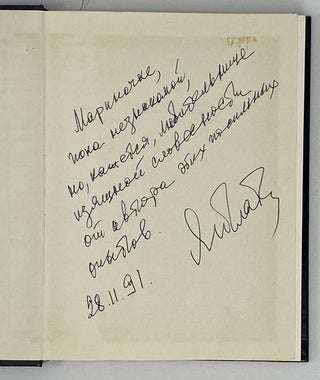 Мариночке,
пока незнакомой,
но, кажется, любительнице
изящной словесности
от автора этих посильных
опытов.
28.11.91.